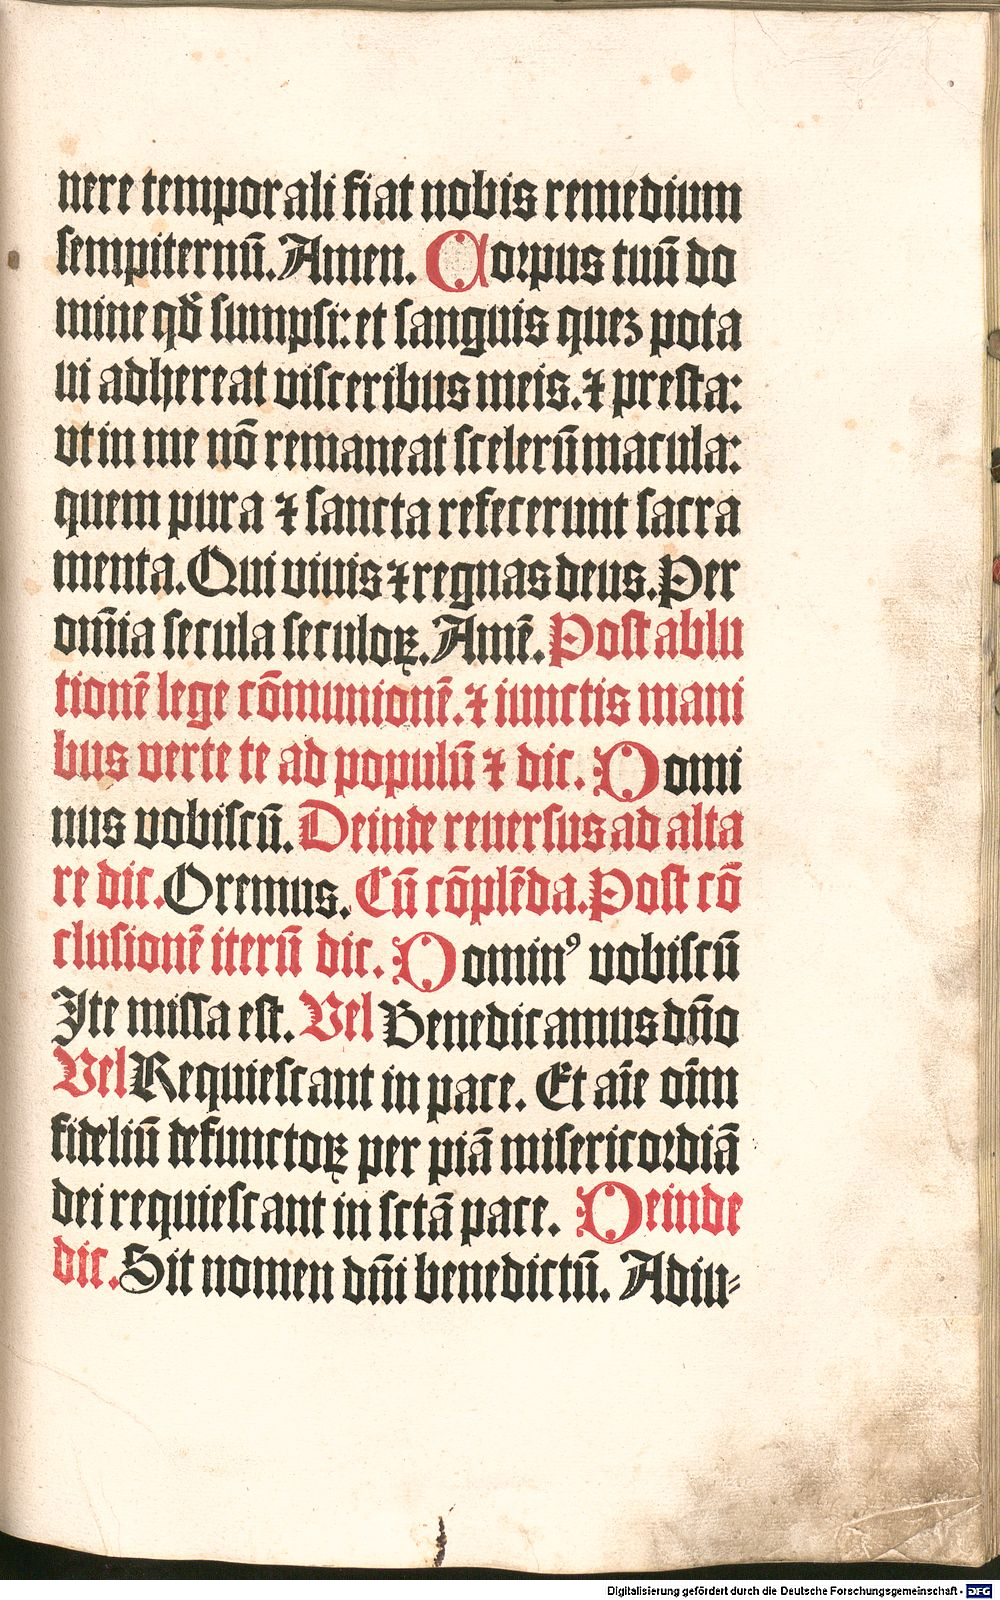 nere temporali fiat nobis remedium
sempiternū. Amen. Corpus tuū do
mine qď sumpsi: et sanguis quez pota
ui adhereat visceribus meis. ⁊ presta:
vt in me nō remaneat scelerū macula:
quem pura ⁊ sancta refecerunt sacra
menta. Qui viuis ⁊ regnas deus. Per
om̄ia secula seculoꝝ. Amē. Post ablu
tionē lege cōmunionē. ⁊ iunctis mani
bus verte te ad populū ⁊ dic. Domi
nus vobiscū. Deinde reuersus ad alta
re dic. Oremus. Cū cōplēda. Post cō
clusionē iterū dic. Dominꝰ vobiscū
Ite missa est. Vel Benedicamus dño
Vel Requiescant in pace. Et aīe oīm
fideliū defunctoꝝ per piā misericordiā
dei requiescant in sctā pace. Deinde
dic. Sit nomen dñi benedictū. Adiu⸗
Digitalisierung gefördert durch die Deutsche Forschungsgemeinschaft - DFG